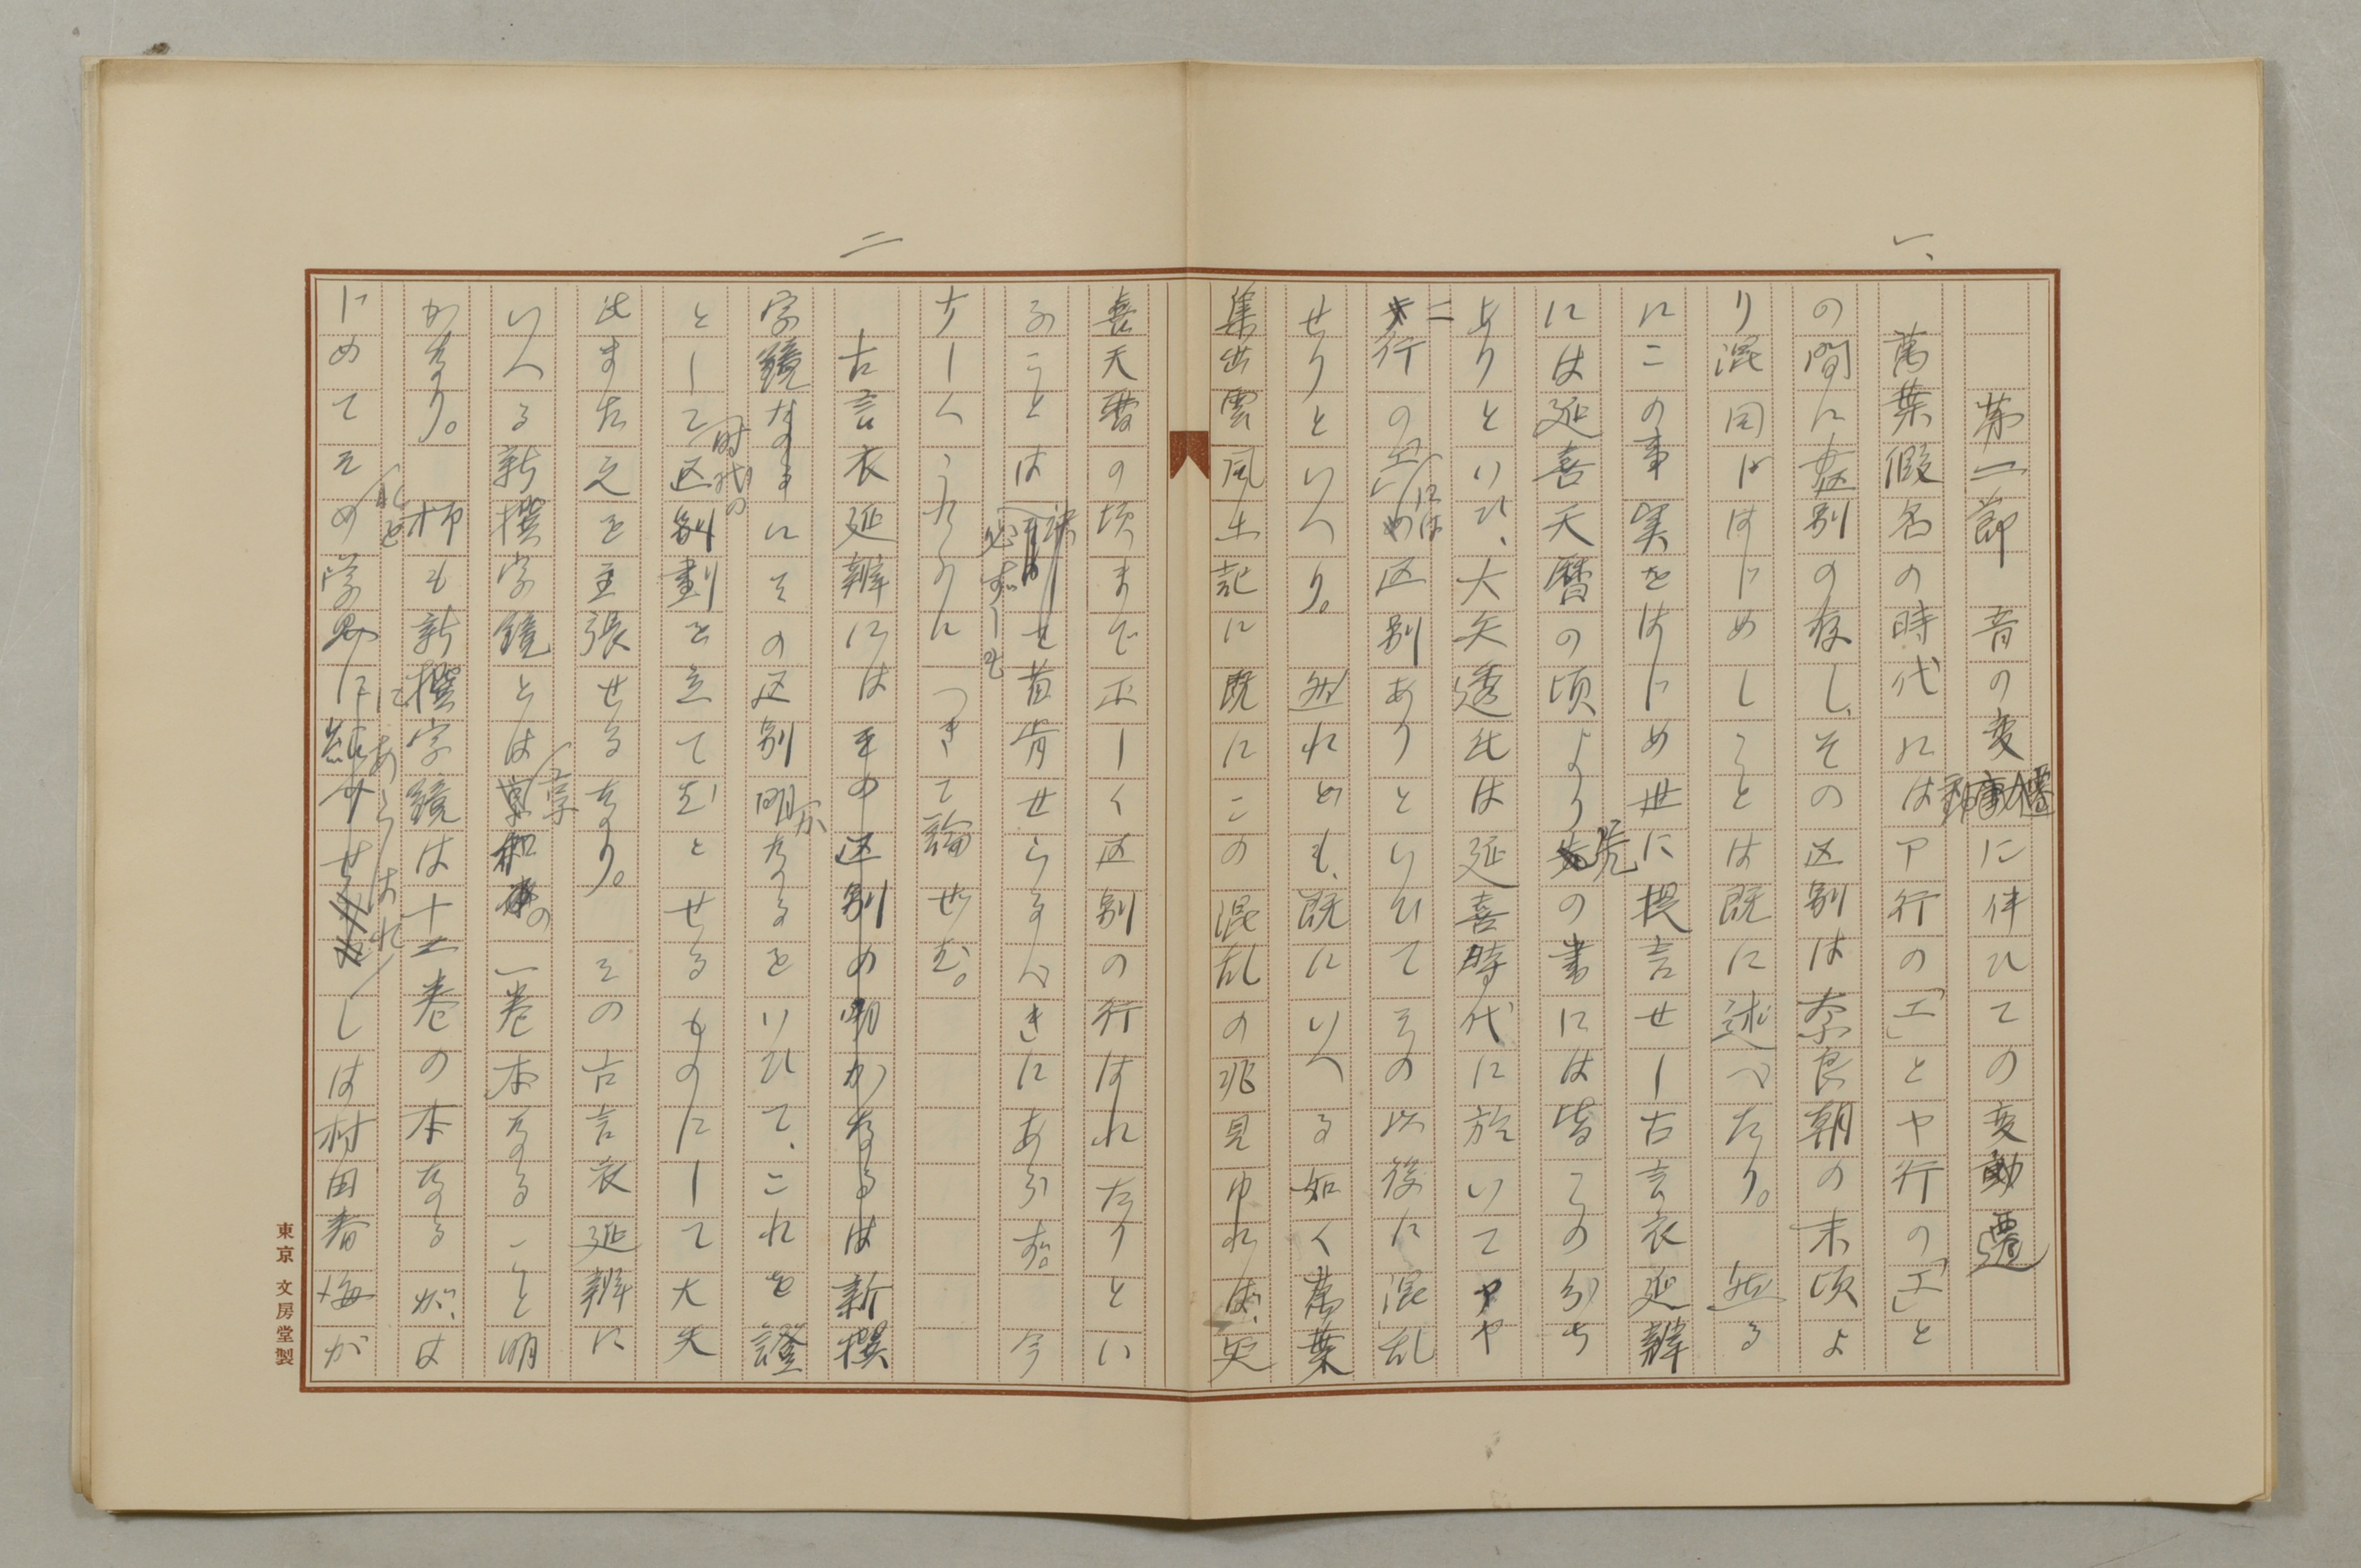 一、
第一節 音の変遷に伴ひての変遷
萬葉假名の時代にはア行の「エ」とヤ行の「エ」と
の間に区別の存し、その区別は奈良朝の末頃よ
り混同しはじめしことは既に述べたり。然る
にこの事実をはじめ世に提言せし古言衣延辨
には延喜天暦の頃より先の書には皆このわち
ありといひ、大矢透氏は延喜時代に於いてヤ
二行のエには区別ありといひてその以後に混乱
せりといへり。然れども、既にいへる如く萬葉
集出雲風土記に既にこの混乱の兆見ゆれば、延
喜天暦の頃まで正しく区別の行はれたりとい
ふことは必ずしも首肯せらるべきにあらず。今
少しくこれらにつきて論せむ。
二
古言衣延辨には新撰
字鏡なるにその区別明かなるをいひて、これを證
として時代の区別劃を立てむとせるものにして大矢
氏またこれを主張せるなり。その古言衣延辨に
いへる新撰字鏡とは享和の一巻本なること明
かなり。抑も新撰字鏡は十二巻の本なるが、は
じめてそれを学界にあらはれしは村田春海が
東京 文房堂製